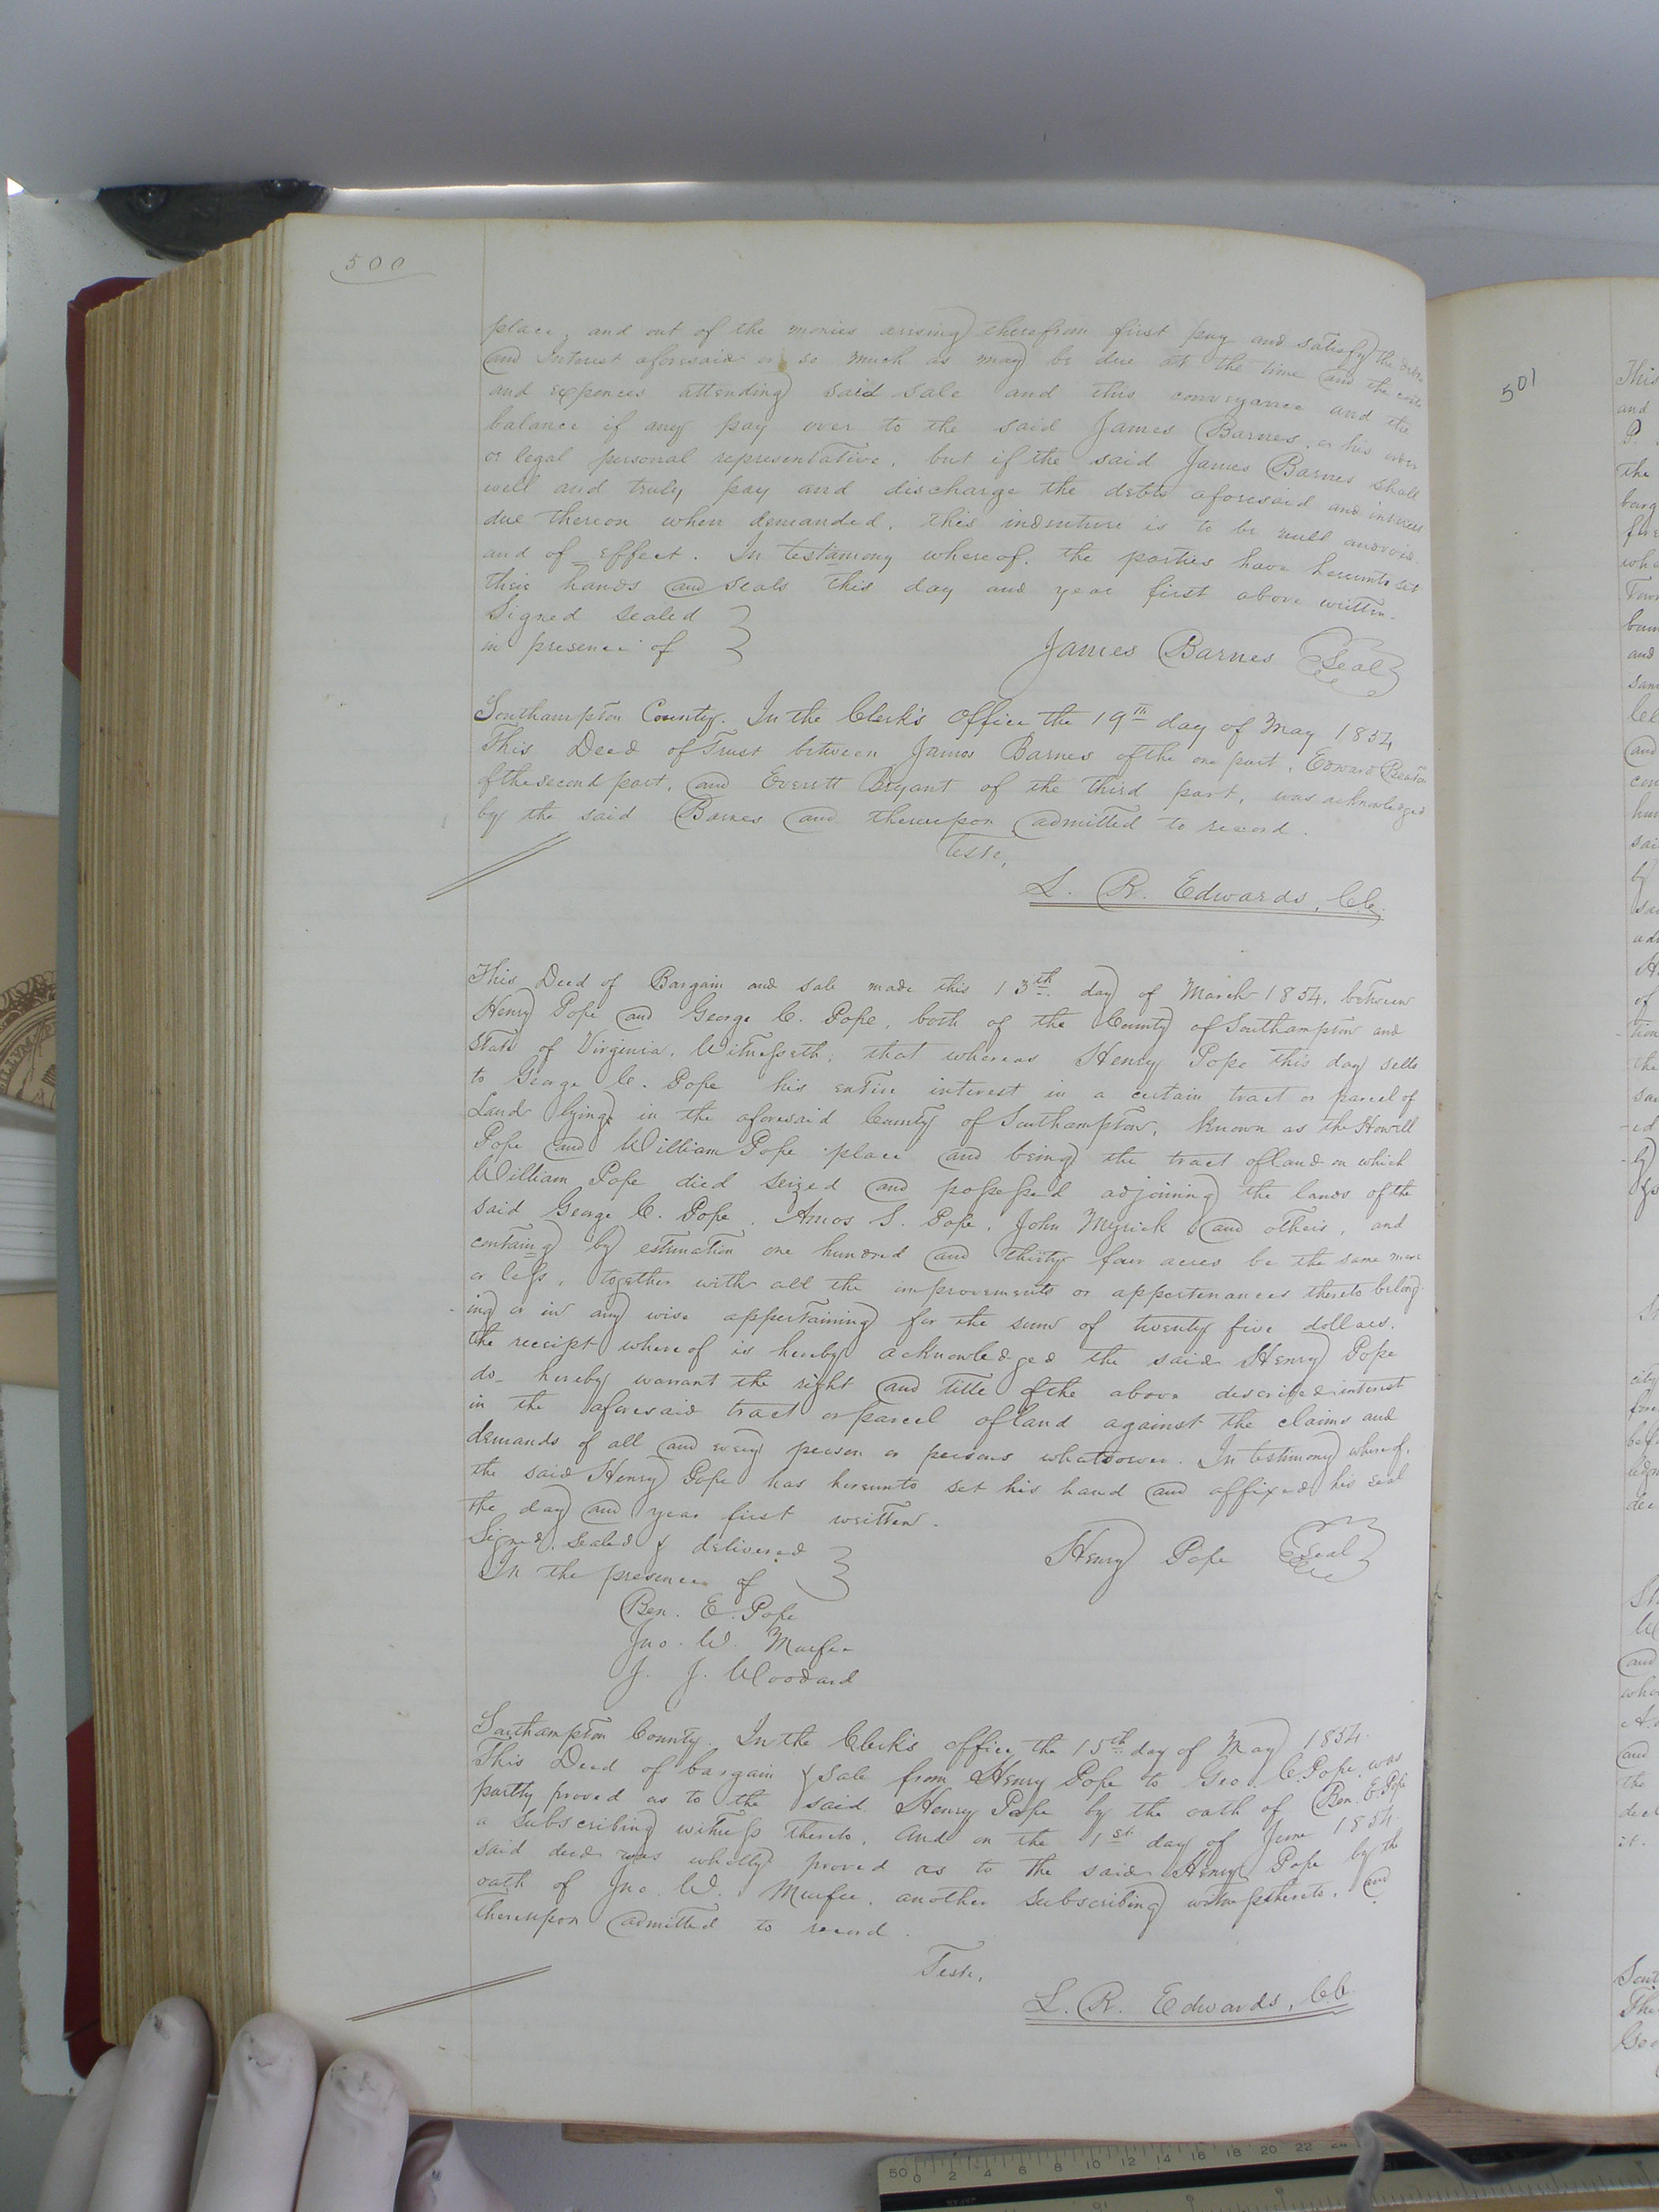 500
place, and out of the monies arising therefrom first pay and satisfy the debts
and Interest aforesaid or so much as may be due at the time and the costs
and expences attending said sale and this conveyance and the
balance if any pay over to the said James Barnes, or his order
or legal personal representative, but if the said James Barnes shall
well and truly pay and discharge the debts aforesaid and interest
due thereon when demanded, this indenture is to be null and void
and of effect. In testamony whereof, the parties have hereunto set
their hands and seals this day and year first above written.
Signed sealed
in presence of
James Barnes Seal
Southampton County. In the Clerk's Office the 19th day of May 1854
This Deed of Trust between James Barnes of the one part, Edward Beaton
of the second part, and Everett Bryant of the third part, was acknowledged
by the said Barnes and thereupon admitted to record.
Teste,
L. R. Edwards, C.C.
This Deed of Bargain and sale made this 13th day of March 1854, between
Henry Pope and George C. Pope, both of the County of Southampton and
State of Virginia, Witnesseth; that whereas Henry Pope this day sells
to George C. Pope his entire interest in a certain tract or parcel of
Land lying in the aforesaid County of Southampton, known as the Howell
Pope and William Pope place and being the tract of land on which
William Pope died seized and possessed adjoining the lands of the
said George C. Pope, Amos S. Pope, John Myrick and others, and
containg by estimation one hundred and thirty four acres be the same more
or less, together with all the improvements or appertenances thereto belong-
ing or in any wise appertaining for the sum of twenty five dollars,
the receipt whereof is hereby acknowledged the said Henry Pope
do hereby warrant the right and title of the above described interest
in the aforesaid tract or parcel of land against the claims and
demands of all and every person or persons whatsoever. In testimony whereof,
the said Henry Pope has hereunto set his hand and affixed his seal
the day and year first written.
Signed, sealed & delivered
In the presence of
Henry Pope Seal
Ben. E. Pope
Jno. W. Murfee
J. J. Woodard
Southampton County. In the Clerk's office, the 15th day of May 1854.
This Deed of bargain & sale from Henry Pope to Geo. C. Pope, was
partly proved as to the said Henry Pope by the oath of Ben. E. Pope
a subscribing witness thereto, and on the 1st day of June 1854
said deed was wholly proved as to the said Henry Pope by the
oath of Jno. W. Murfee, another subscribing witness thereto, and
thereupon admitted to record.
Teste,
L. R. Edwards, C.C.
501